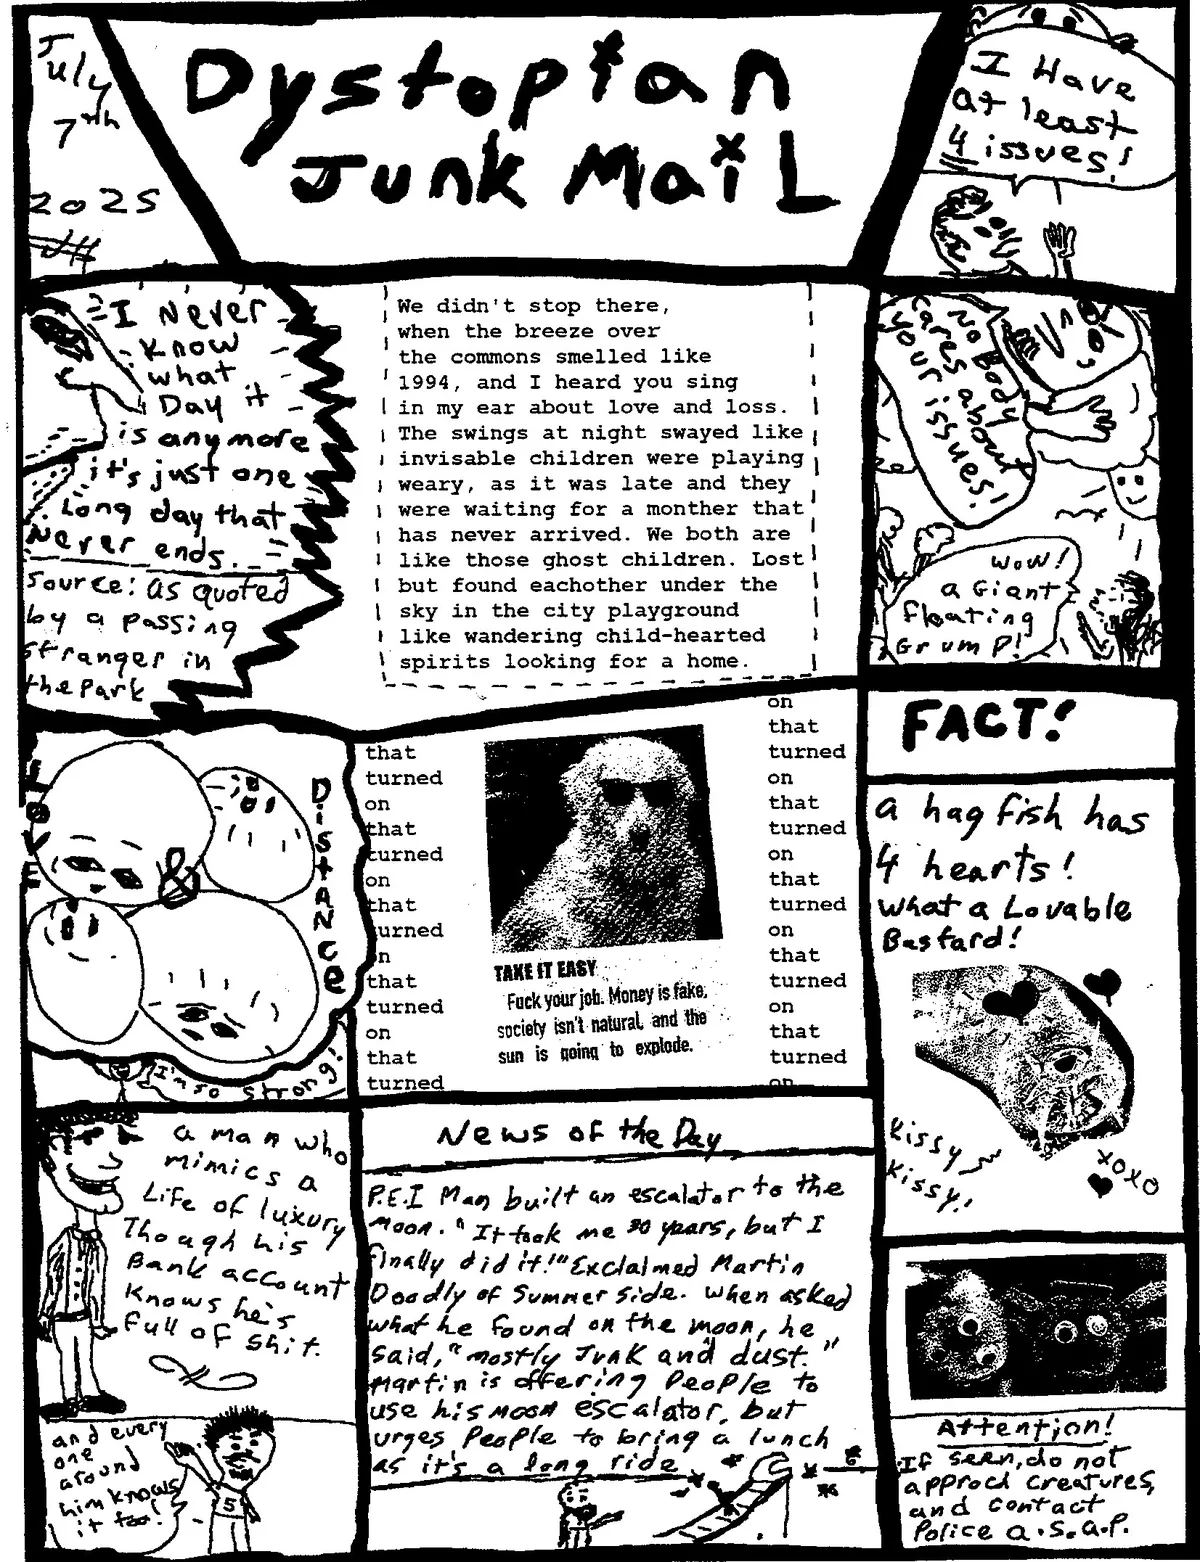 July
7th
2025
Dystopian
Junk Mail
I Have
at least
4 issues!
I Never
Know
what
Day it
is anymore
it's just one
Long day that
Never ends.
Source: As quoted
by a passing
stranger in
the Park
We didn't stop there,
when the breeze over
the commons smelled like
1994, and I heard you sing
in my ear about love and loss.
The swings at night swayed like
invisable children were playing
weary, as it was late and they
were waiting for a monther that
has never arrived. We both are
like those ghost children. Lost
but found eachother under the
sky in the city playground
like wandering child-hearted
spirits looking for a home.
No Body
cares about
your issues!
wow!
a Giant
floating
Grump!
LOVE
&
DistANce
I'm so strong!
that
turned
on
that
turned
on
that
turned
on
that
turned
on
that
turned
TAKE IT EASY
Fuck your job. Money is fake,
society isn't natural, and the
sun is going to explode.
on
that
turned
on
that
turned
on
that
turned
on
that
turned
on
that
turned
on
FACT!
a hagfish has
4 hearts!
What a Lovable
Bastard!
Kissy
Kissy!
XOXO
a man who
mimics a
Life of luxury
Though his
Bank account
Knows he's
full of shit.
and every
one
around
him knows
it too!
S
News of the Day
P.E.I Man built an escalator to the
moon. "It took me 30 years, but I
finally did it!" Exclaimed Martin
Doodly of Summerside. When asked
what he found on the moon, he
said, "mostly Junk and dust."
Martin is offering People to
use his moon escalator, but
urges People to bring a lunch
as it's a long ride
Attention!
If seen, do not
approch creatures,
and contact
Police a.s.a.p.